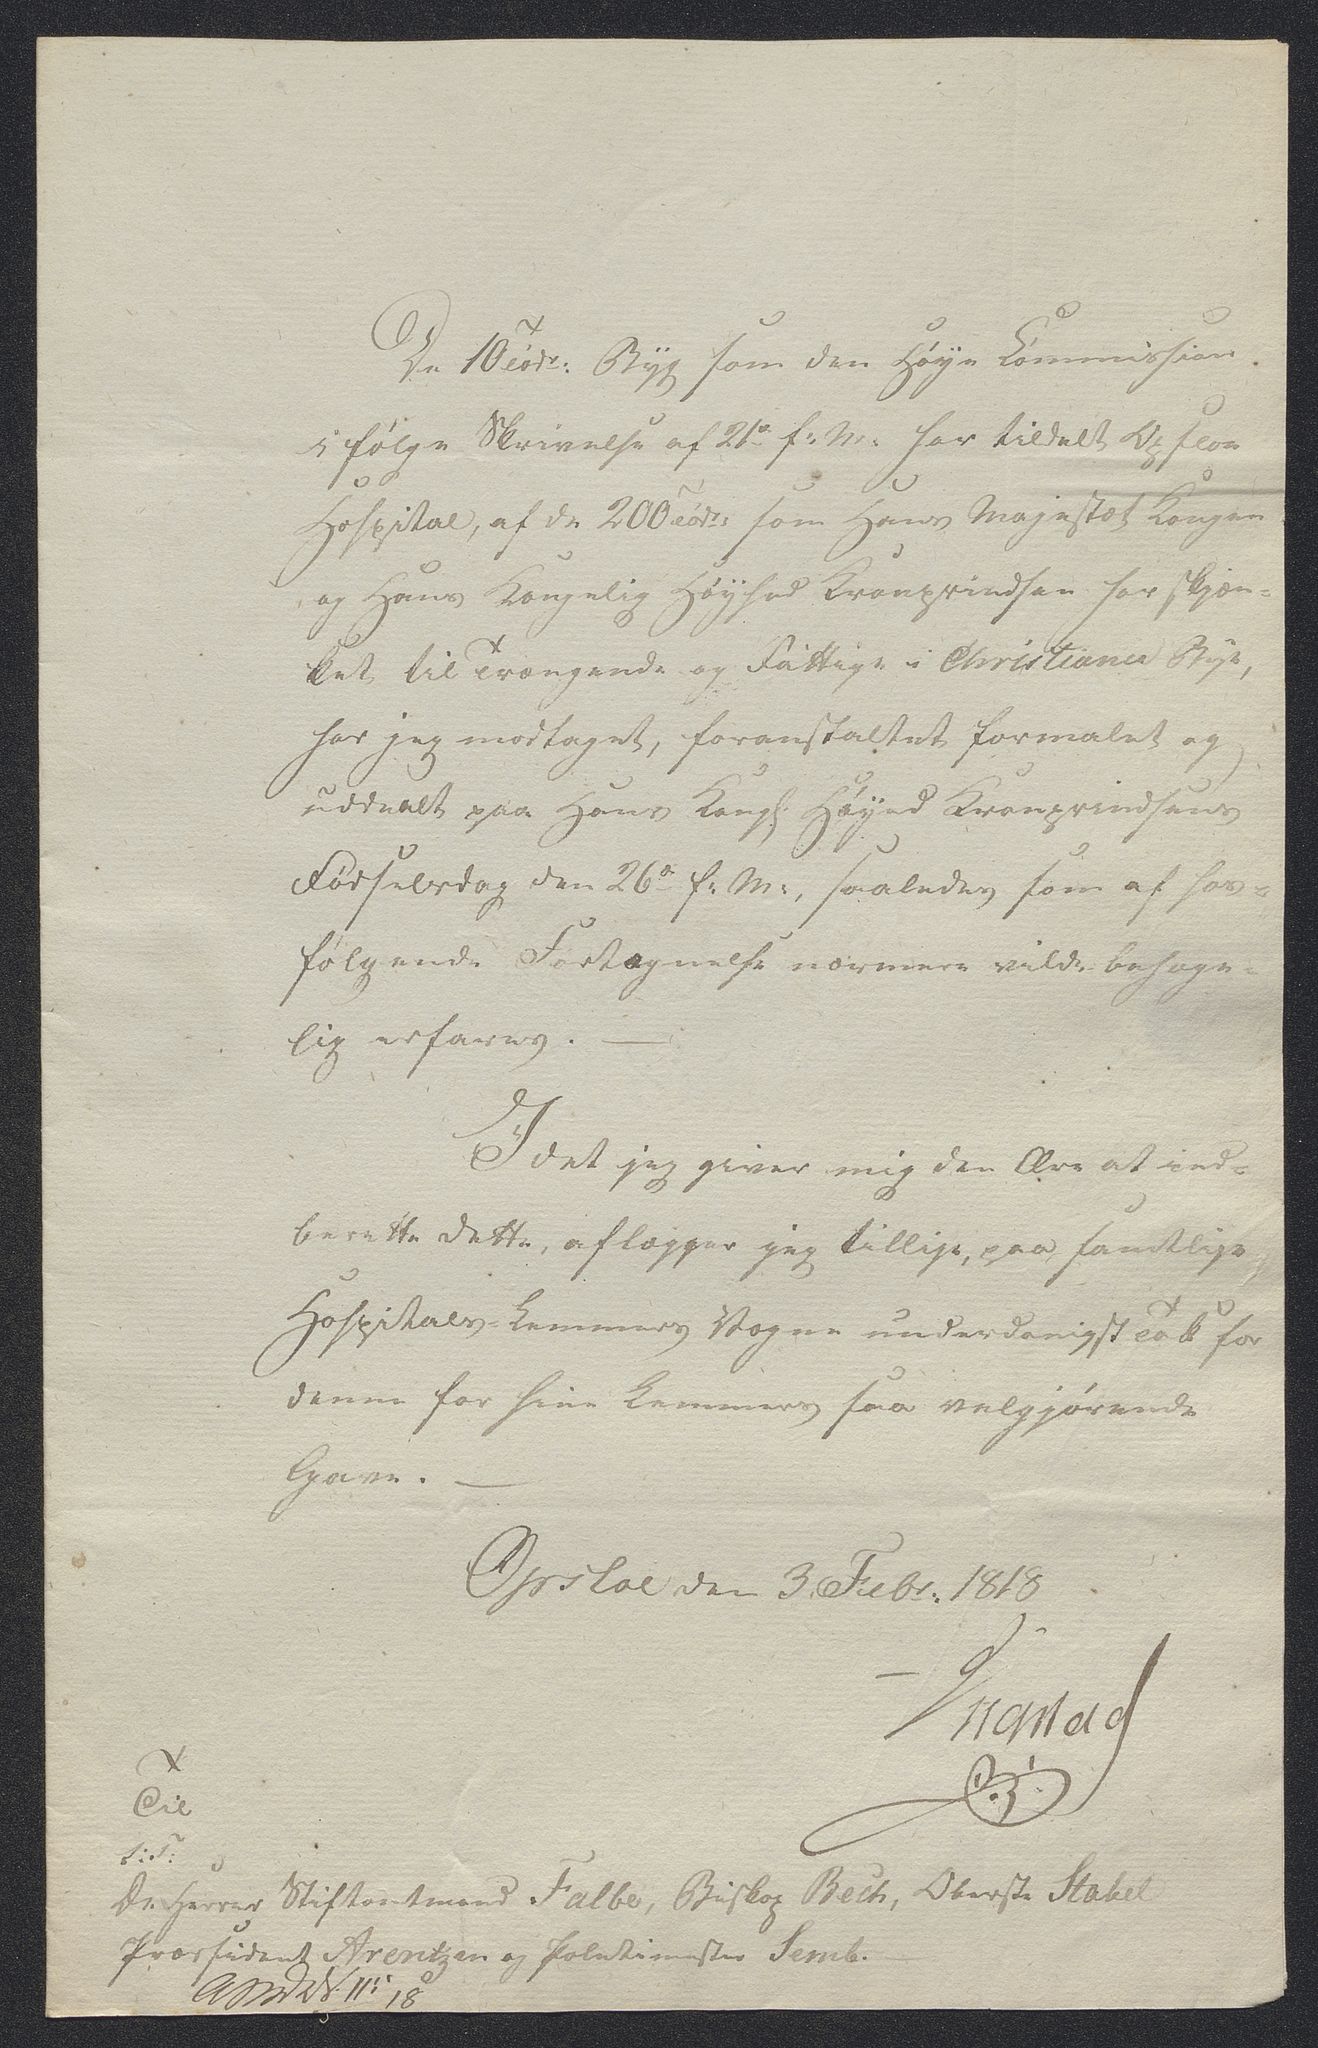 De 10 Tødr: Byg som den Høye Commission
i følge Skrivelse af 21de f: M: har tildelt Opsloe
Hospital, af de 200 Tødr: som Hans Majestæt Kongen
og Hans Kongelig Høyhed Kronprindsen har skjæn-
ket til Trængende og Fattige i Christiania Bye,
har jeg modtaget, foranstaltet formalet og
uddeelt paa Hans Kongl: Høyed Kronprindsens
Fødselsdag den 26de f: M:, saaledes som af hos-
følgende Fortegnelse nærmere vilde behage-
lig erfares. —
I det jeg giver mig den Ære at ind-
berette dette, aflægger jeg tillige, paa samtlige
Hospitals-Lemmers Vægne underdanigst Tak for
denne for hine Lemmers saa velgjørende
Gave. —
Opsloe den 3 Febr: 1818
Ingstad
Til
S: T:
De Herrer Stiftamtmand Falbe, Biskop Bech, Oberste Stabel
Præsident Arentzen og Politimester Semb.